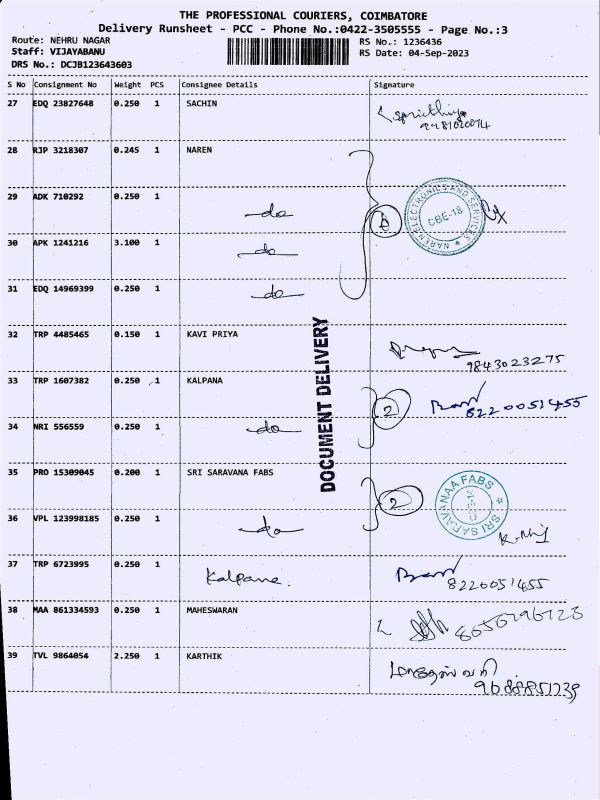 THE PROFESSIONAL COURIERS, COIMBATORE
Delivery Runsheet - PCC - Phone No.:0422-3505555 - Page No.:3
Route: NEHRU NAGAR RS No.: 1236436
Staff: VIJAYABANU RS Date: 04-Sep-2023
DRS No.: DCJB123643603
S No Consignment No Weight PCS Consignee Details Signature
27 EDQ 23827648 0.250 1 SACHIN
28 RJP 3218307 0.245 1 NAREN
29 ADK 710292 0.250 1 do NAREN ELECTRONICS AND SERVICES CBE-18
30 APK 1241216 3.100 1 do
31 EDQ 14969399 0.250 1 do
DOCUMENT DELIVERY
32 TRP 4485465 0.150 1 KAVI PRIYA
9843023275
33 TRP 1607382 0.250 1 KALPANA 2 8220051455
34 NRI 556559 0.250 1 do
35 PRO 15309045 0.200 1 SRI SARAVANA FABS 2 SRI SARAVANAA FABS
36 VPL 123998185 0.250 1 do
37 TRP 6723995 0.250 1 Kalpana.
8220051455
38 MAA 861334593 0.250 1 MAHESWARAN
39 TVL 9864054 2.250 1 KARTHIK